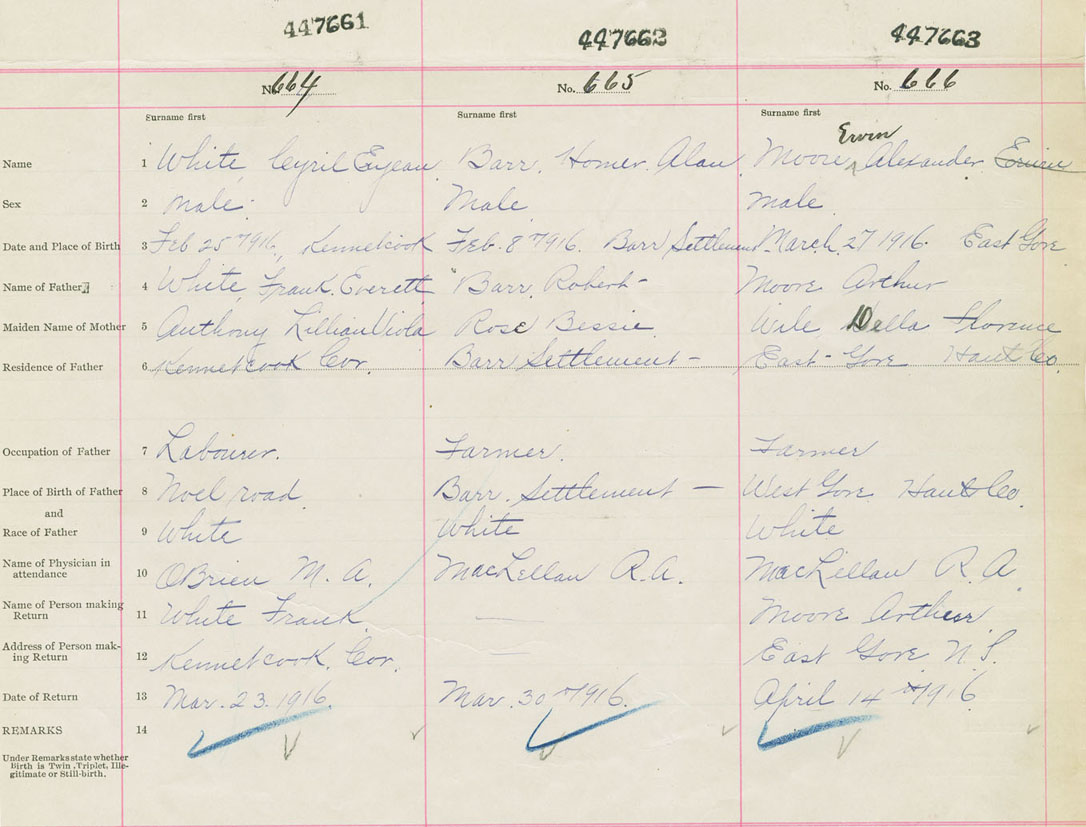 447661 447662 447663
No. 664 No. 665 No. 666
Surname first Surname first Surname first
Erwin
Name 1 White, Cyril Barr, Homer Alan Moore Alexander
Sex 2 male. Male male
Date and Place of Birth 3 Feb 25th 1916, Kennetcook Feb. 8th 1916. Barr Settlement March 27 1916. East Gore
Name of Father 4 White, Frank Everett Barr, Robert - Moore Arthur
Maiden Name of Mother 5 Anthony Lillian Viola Rose Bessie Wile Della Florence
Residence of Father 6 Kennetcook Cor. Barr Settlement - East Gore Hants Co.
Occupation of Father 7 Labourer. Farmer. Farmer
Place of Birth of Father 8 Noel road Barr. Settlement — West Gore Hants Co.
and
Race of Father 9 White White White
Name of Physician in
attendance 10 O'Brien M. A. MacLellan R.A. MacLellan R. A
Name of Person making
Return 11 White Frank — Moore Arthur
Address of Person mak-
ing Return 12 Kennetcook. Cor. — East Gore N.S.
Date of Return 13 Mar. 23. 1916. Mar. 30th 1916. April 14th 1916
REMARKS 14
Under Remarks state whether
Birth is Twin, Triplet, Ille-
gitimate or Still-birth.